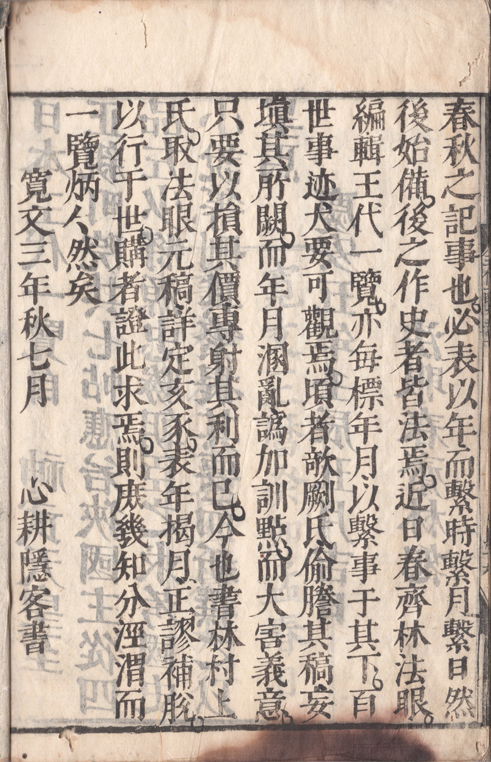 春秋之記事也必表以年而繫時繫月繫日然
後始備後之作史者皆法焉近日春齊林法眼
編輯王代一覽亦每標年月以繫事于其下百
世事迹大要可觀焉頃者敵闕氏偷謄其稿妄
塡其所闕而年月溷亂譌加訓點而大害義意
只要以損其價專射其利而已今也書林村上
氏取法眼元稿詳定亥豕表年揭月正謬補脫
以行于世購者證此求焉則庶幾知分涇渭而
一覽炳々然矣
寬文三年秋七月 心耕隱客書